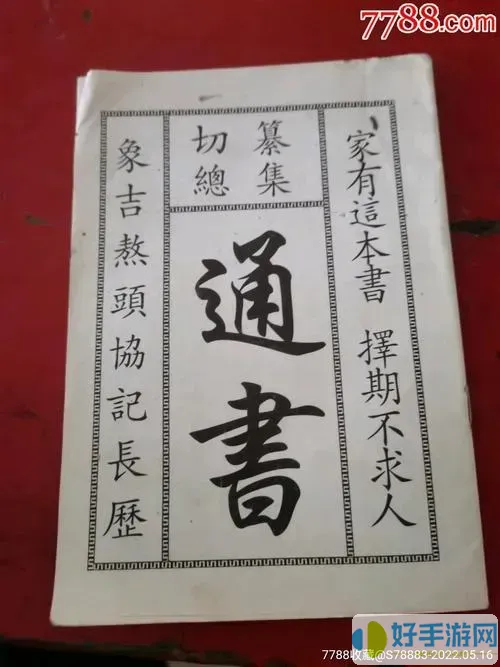 7788.com
家有這本書 擇期不求人
纂集
切總
通書
象吉熬頭協記長歷
好手游网
7788收藏@S78883-2022.05.16